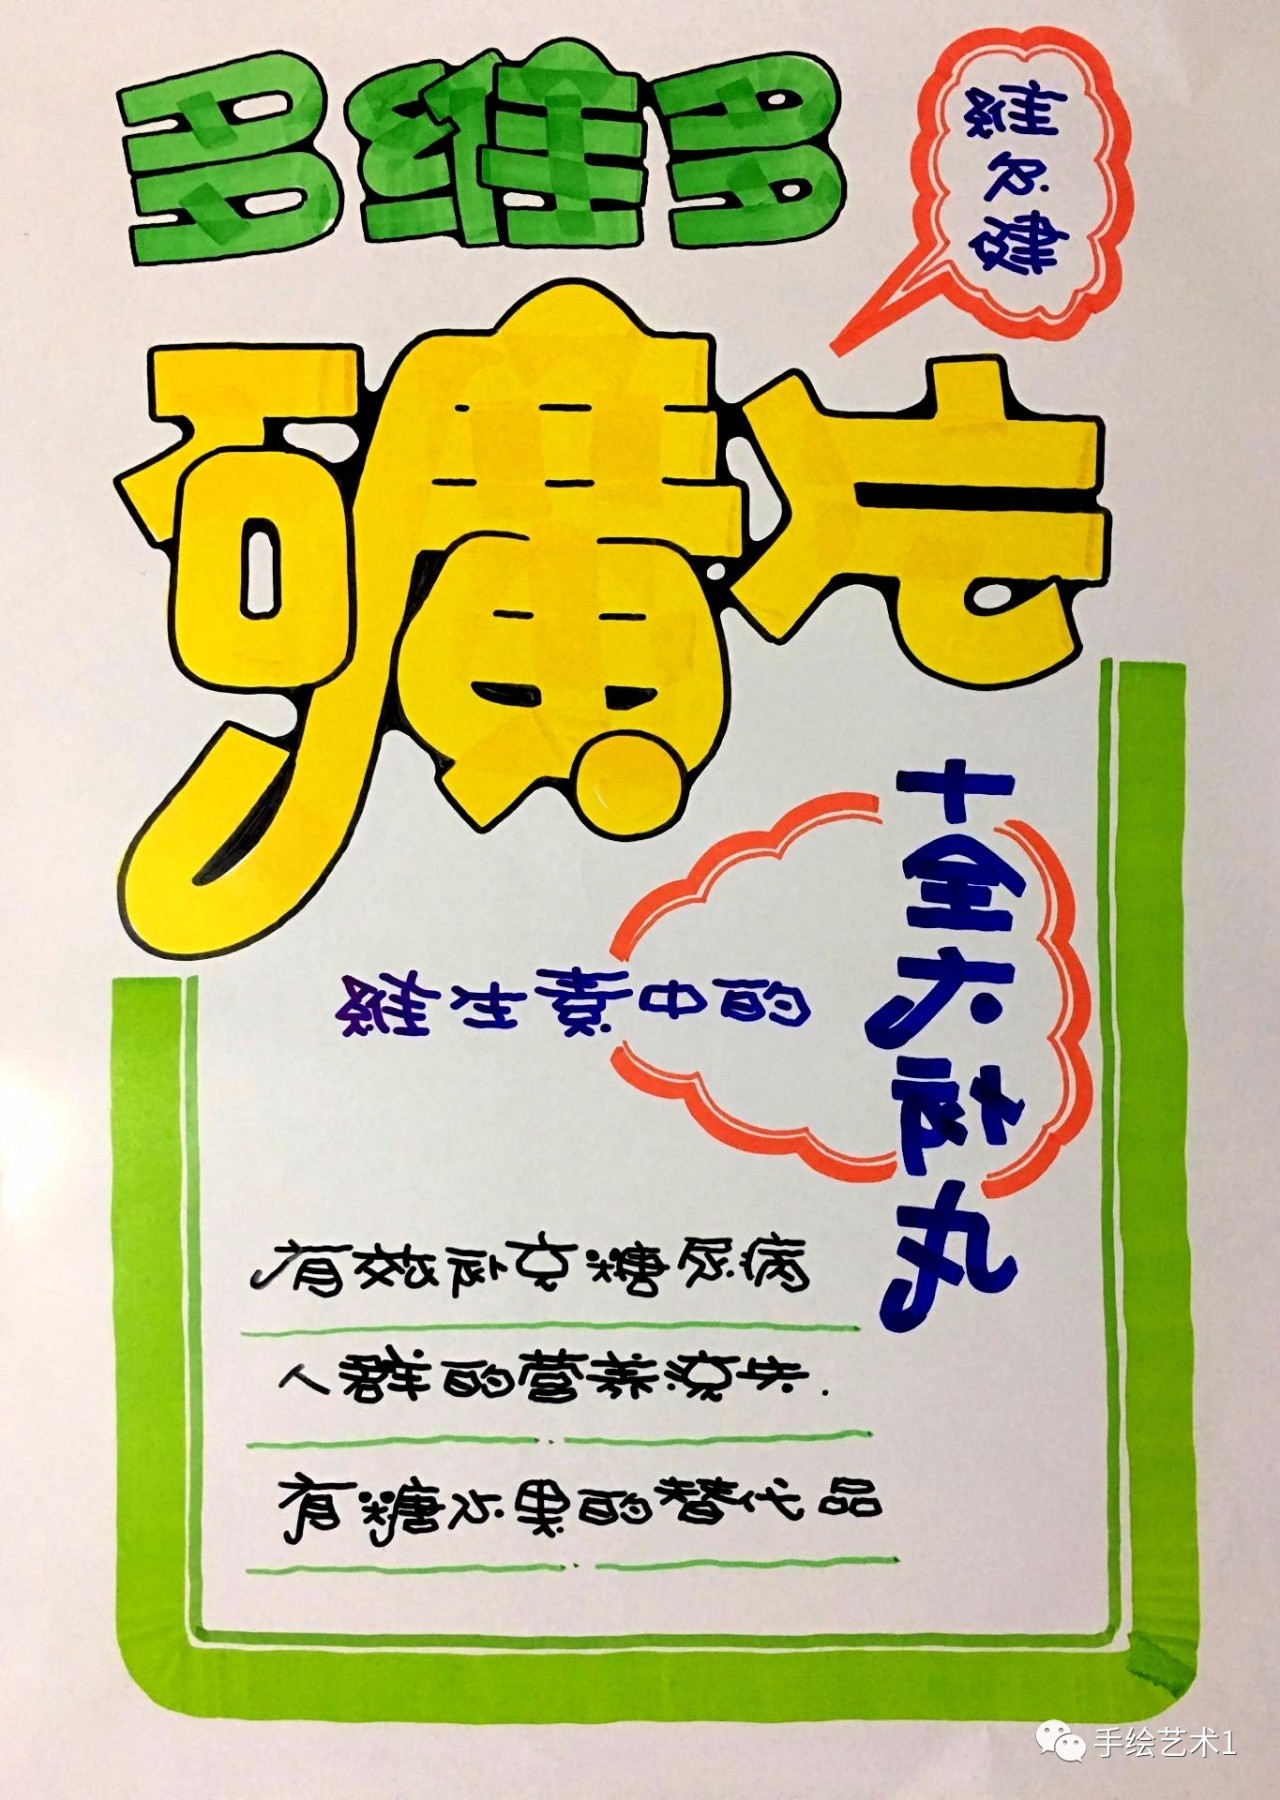 多维多
維尔健
礦片
十全大补丸
維生素中的
有效补充糖尿病
人群的营养流失.
有糖水果的替代品
手绘艺术1